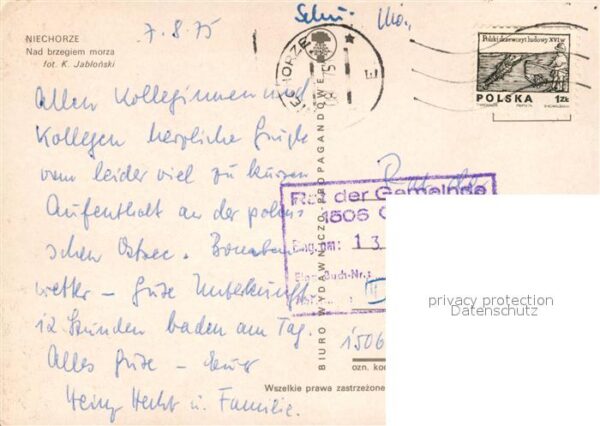 NIECHORZE
Nad brzegiem morza
fot. K. Jabłoński
7.8.75
Allen Kolleginnen und
Kollegen herzliche Grüße
vom leider viel zu kurzen
Aufenthalt an der polni-
schen Ostsee. Bomben-
wetter – Gute Unterkunft
12 Stunden baden am Tag.
Alles Gute – Eure
Heinz Hecht u. Familie.
BIURO WYDAWNICZO PROPAGANDOWE
NIECHORZE
Polski drzeworyt ludowy XVI w.
POLSKA 1 ZŁ
Rat der Gemeinde
1506
Eing. am: 13
Buch-Nr.:
III
1506
ozn. kod
Wszelkie prawa zastrzeżone
privacy protection
Datenschutz